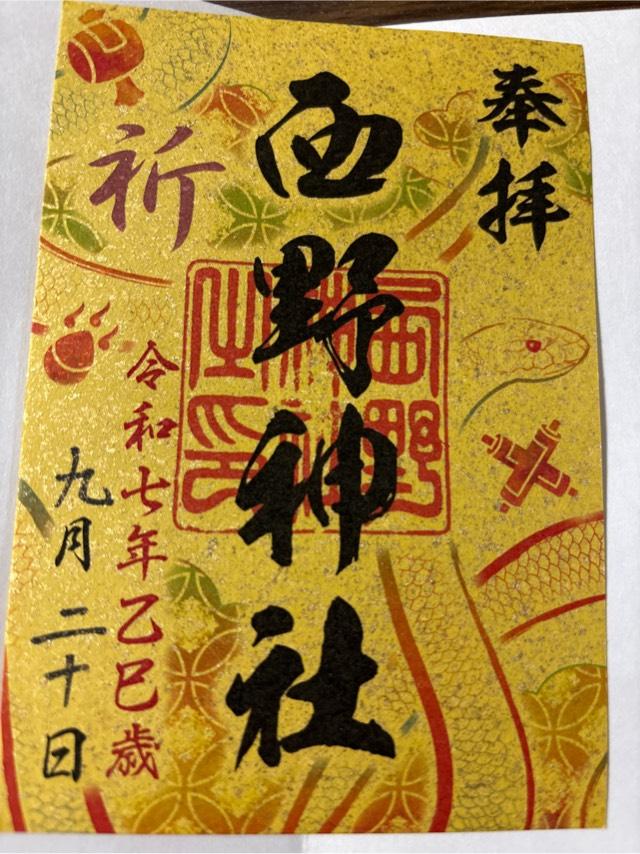 奉拝
西野神社
西野神社之印
祈
令和七年乙巳歳
九月二十日